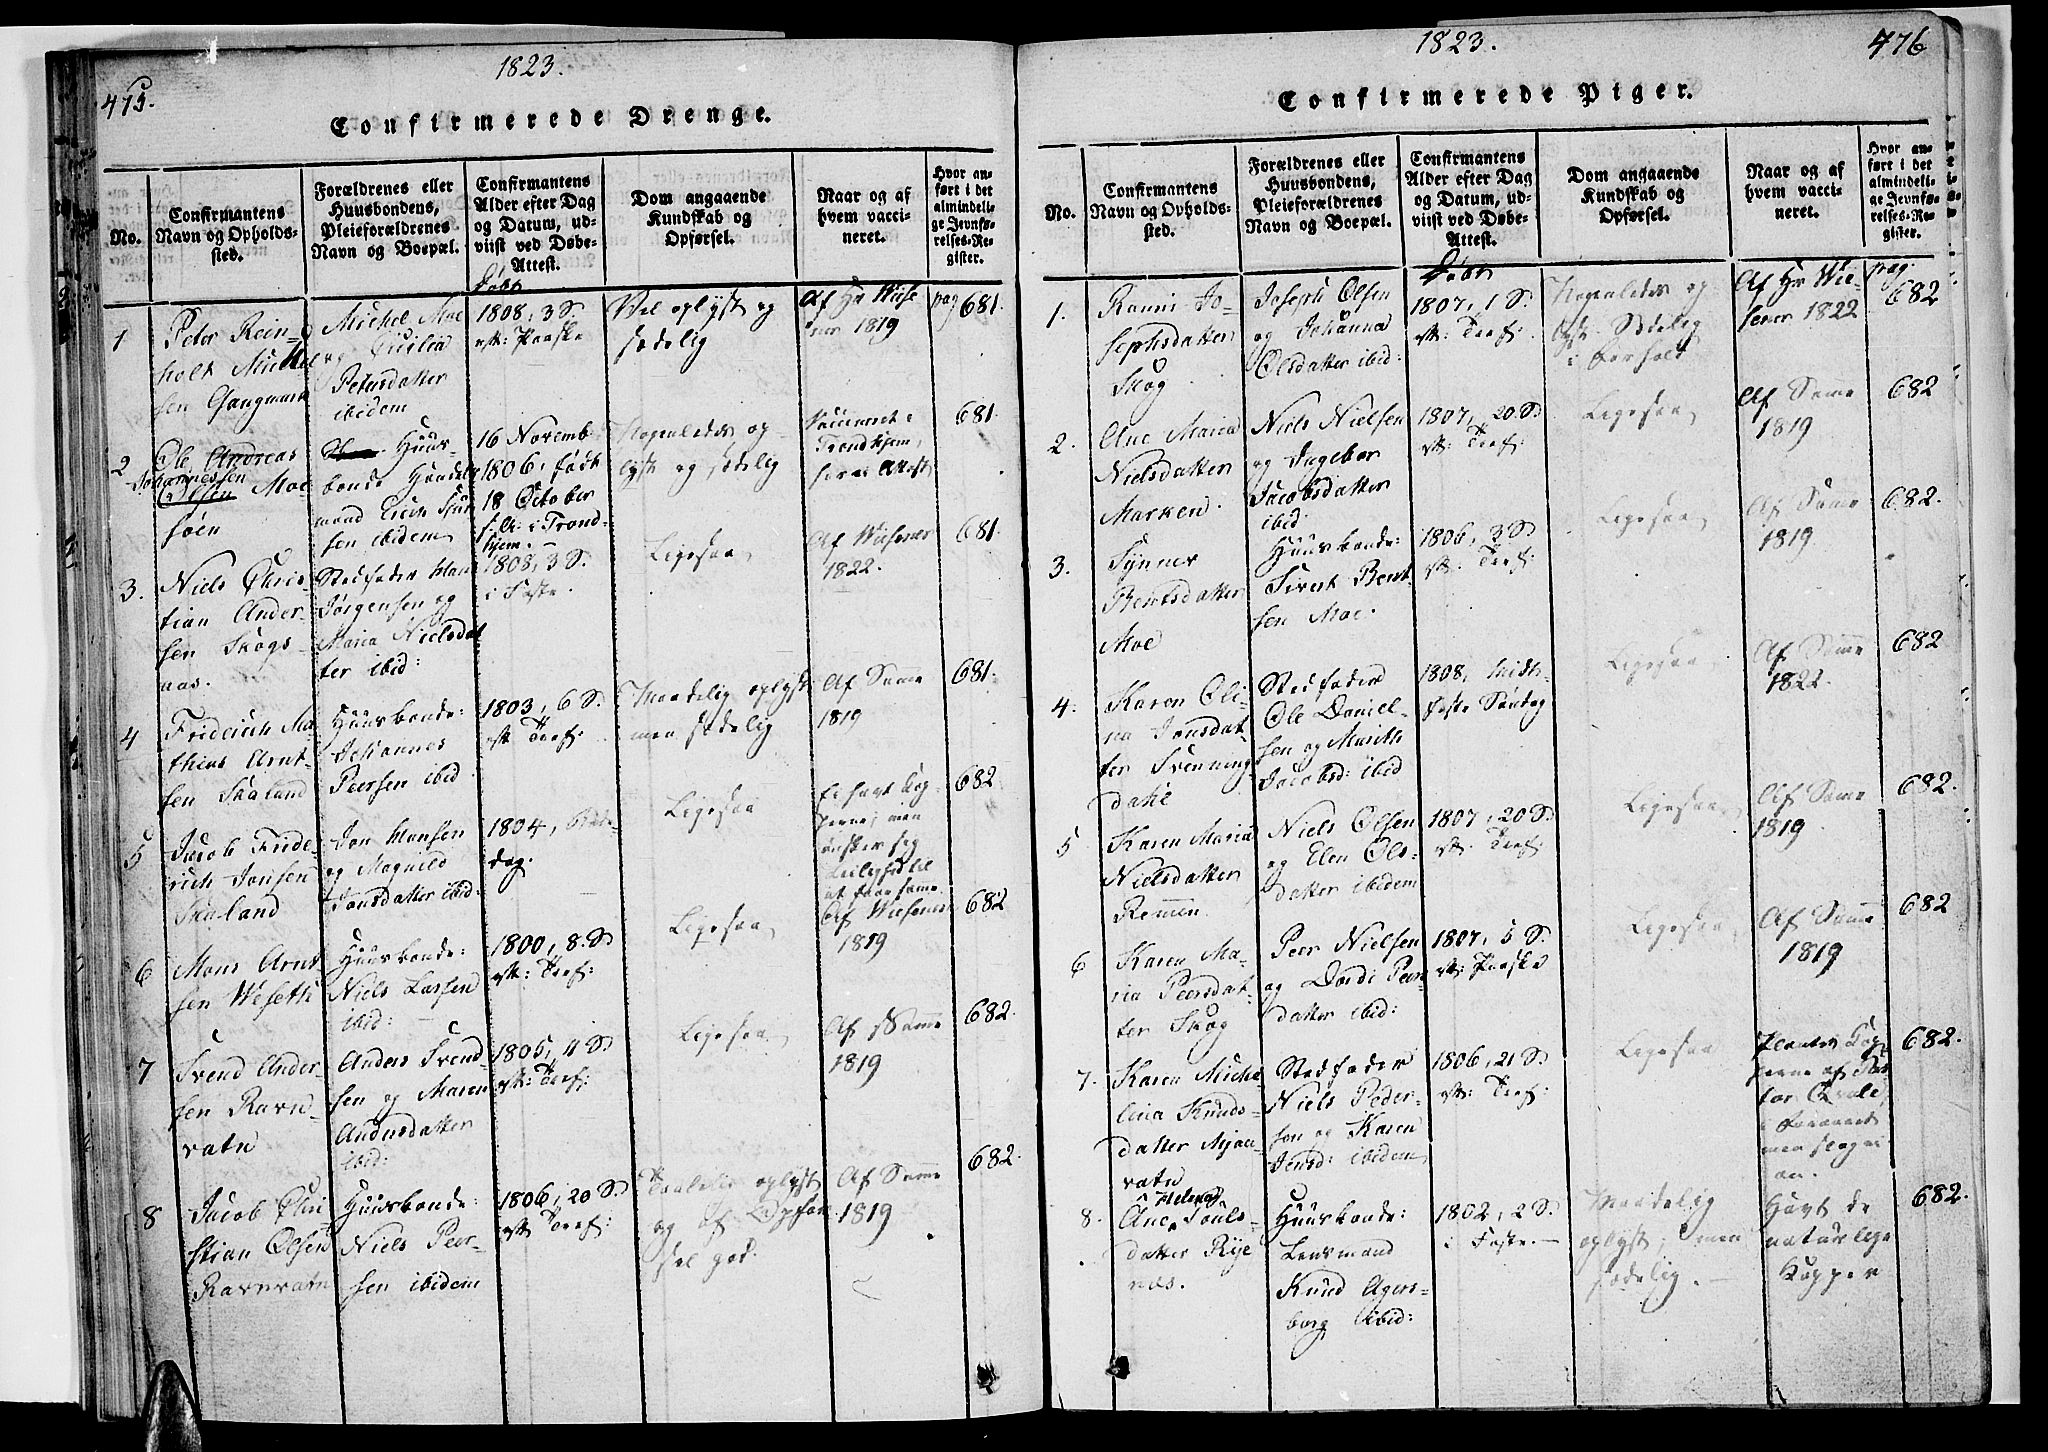 475.
1823.
Confirmerede Drenge.
No.
Confirmantens
Navn og Opholds-
sted.
Forældrenes eller
Huusbondens,
Pleieforældrenes
Navn og Boepæl.
Confirmantens
Alder efter Dag
og Datum, ud-
viist ved Døbe-
Attest.
Dom angaaende
Kundskab og
Opførsel.
Naar og af
hvem vacci-
neret.
Hvor an-
ført i det
almindeli-
ge Jevnfø-
relses-Re-
gister.
Døbt
1
Peter Rein-
holt Mickel
sen Gangmark
Michel Moe
og Cicilia
Petersdatter
ibidem
1808, 3 S.
eft: Paaske
Vel oplyst og
sædelig
Af Hr Wiese
ner 1819
pag 681.
2
Ole Andreas
Johannessen
Olsen Moe
søen
Huus-
bonde Handels
mand Erich Sjur
sen ibidem
16 Novemb:
1806, født
18 October
s. A: i Trond-
hjem.
Nogenledes op-
lyst og sædelig
Vaccineret i
Trondhjem,
Attest
681.
3.
Niels Chris-
tian Ander-
sen Skogs-
aas.
Stedfader Hans
Jørgensen og
Maria Nielsdat
ter ibid:
1808, 3 S.
i Faste.
Ligesaa
Af Wiesener
1822.
681.
4
Friderich Ma-
thias Arnt-
sen Skaland
Huusbonde:
Johannes
Peersen ibid
1803, 6 S.
eft Tref:
Maadelig oplyst
men sædelig
Af Samme
1819
681.
5
Jacob Fride-
rich Jonsen
Skaland
Jon Hansen
og Magnild
Jonsdatter ibid:
1804,
dag.
Ligesaa
Ei havt Kop-
perne, men
ønsker sig
Leilighed til
at faae samme.
682
6
Mons Arnt
sen Wesetti
Huusbonde:
Niels Larsen
ibid:
1800, 8. S.
eft: Tref:
Ligesaa
Af Wiesener
1819
682
7
Svend Ander-
sen Ravn-
vatn
Anders Svend
sen og Maren
Andersdatter
ibid:
1805, 11 S.
eft: Tref:
Ligesaa
Af Samme
1819
682.
8
Jacob Chri
stian Olsen
Ravnvatn
Huusbonde:
Niels Peer-
sen ibidem
1806, 20 S.
eft Tref:
Taalelig oplyst
og af Opfør
sel god.
Af Samme
1819
682.
1823.
476
Confirmerede Piger.
No.
Confirmantens
Navn og Opholds-
sted.
Forældrenes eller
Huusbondens,
Pleieforældrenes
Navn og Boepæl.
Confirmantens
Alder efter Dag
og Datum, ud-
viist ved Døbe-
Attest.
Dom angaaende
Kundskab og
Opførsel.
Naar og af
hvem vacci-
neret.
Hvor an-
ført i det
almindeli-
ge Jevnfø-
relses-Re-
gister.
Døbt
1.
Ranni Jo-
sephsdatter
Skog
Joseph Olsen
og Johanna
Olsdatter ibid:
1807, 1 S.
eft: Tref:
Nogenledes op
lyst. Sædelig
i Forhold
Af Hr Wie-
sener 1822
pag.
682
2.
Ane Maria
Nielsdatter
Marken.
Niels Nielsen
og Ingebor
Jacobsdatter
ibid:
1807, 20 S.
eft: Tref:
Ligesaa
Af Samme
1819
682
3.
Synner
Bentsdatter
Moe
Huusbonde:
Sivert Bent
sen Moe.
1806, 3 S
eft. Tref:
Ligesaa
Af Samme
1819
682.
4.
Karen Oli-
na Jonsdat-
ter Svenning
dahl
Stedfader
Ole Daniel-
sen og Marith
Jacobsd: ibid
1808, Midt-
faste Søndag
Ligesaa
Af Samme
1822.
682
5
Karen Maria
Nielsdatter
Remmen.
Niels Olsen
og Elen Ols-
datter ibidem
1807, 20 S.
eft. Tref:
Ligesaa
Af Samme
1819
682.
6
Karen Ma-
ria Peersdat-
ter Skog
Peer Nielsen
og Dordi Peers
datter ibid:
1807, 5 S.
eft: Paaske
Ligesaa
Af Samme
1819
682
7.
Karen Miche
lina Knuds-
datter Mjaa
vatn
Stedfader
Niels Peder-
sen og Karen
Jensd: ibidem
1806, 21 S.
eft: Tref:
Ligesaa
Kop
perne af
tor Qvale
men slog ei
an.
682.
8.
Helena
Ane Pouls-
datter Rye
næs.
Huusbonde:
Lensmand
Knud Agers-
borg ibid:
1802, 2 S.
i Faste.
Maadelig
oplyst, men
sædelig.
Havt de
naturlige
Kopper
682.